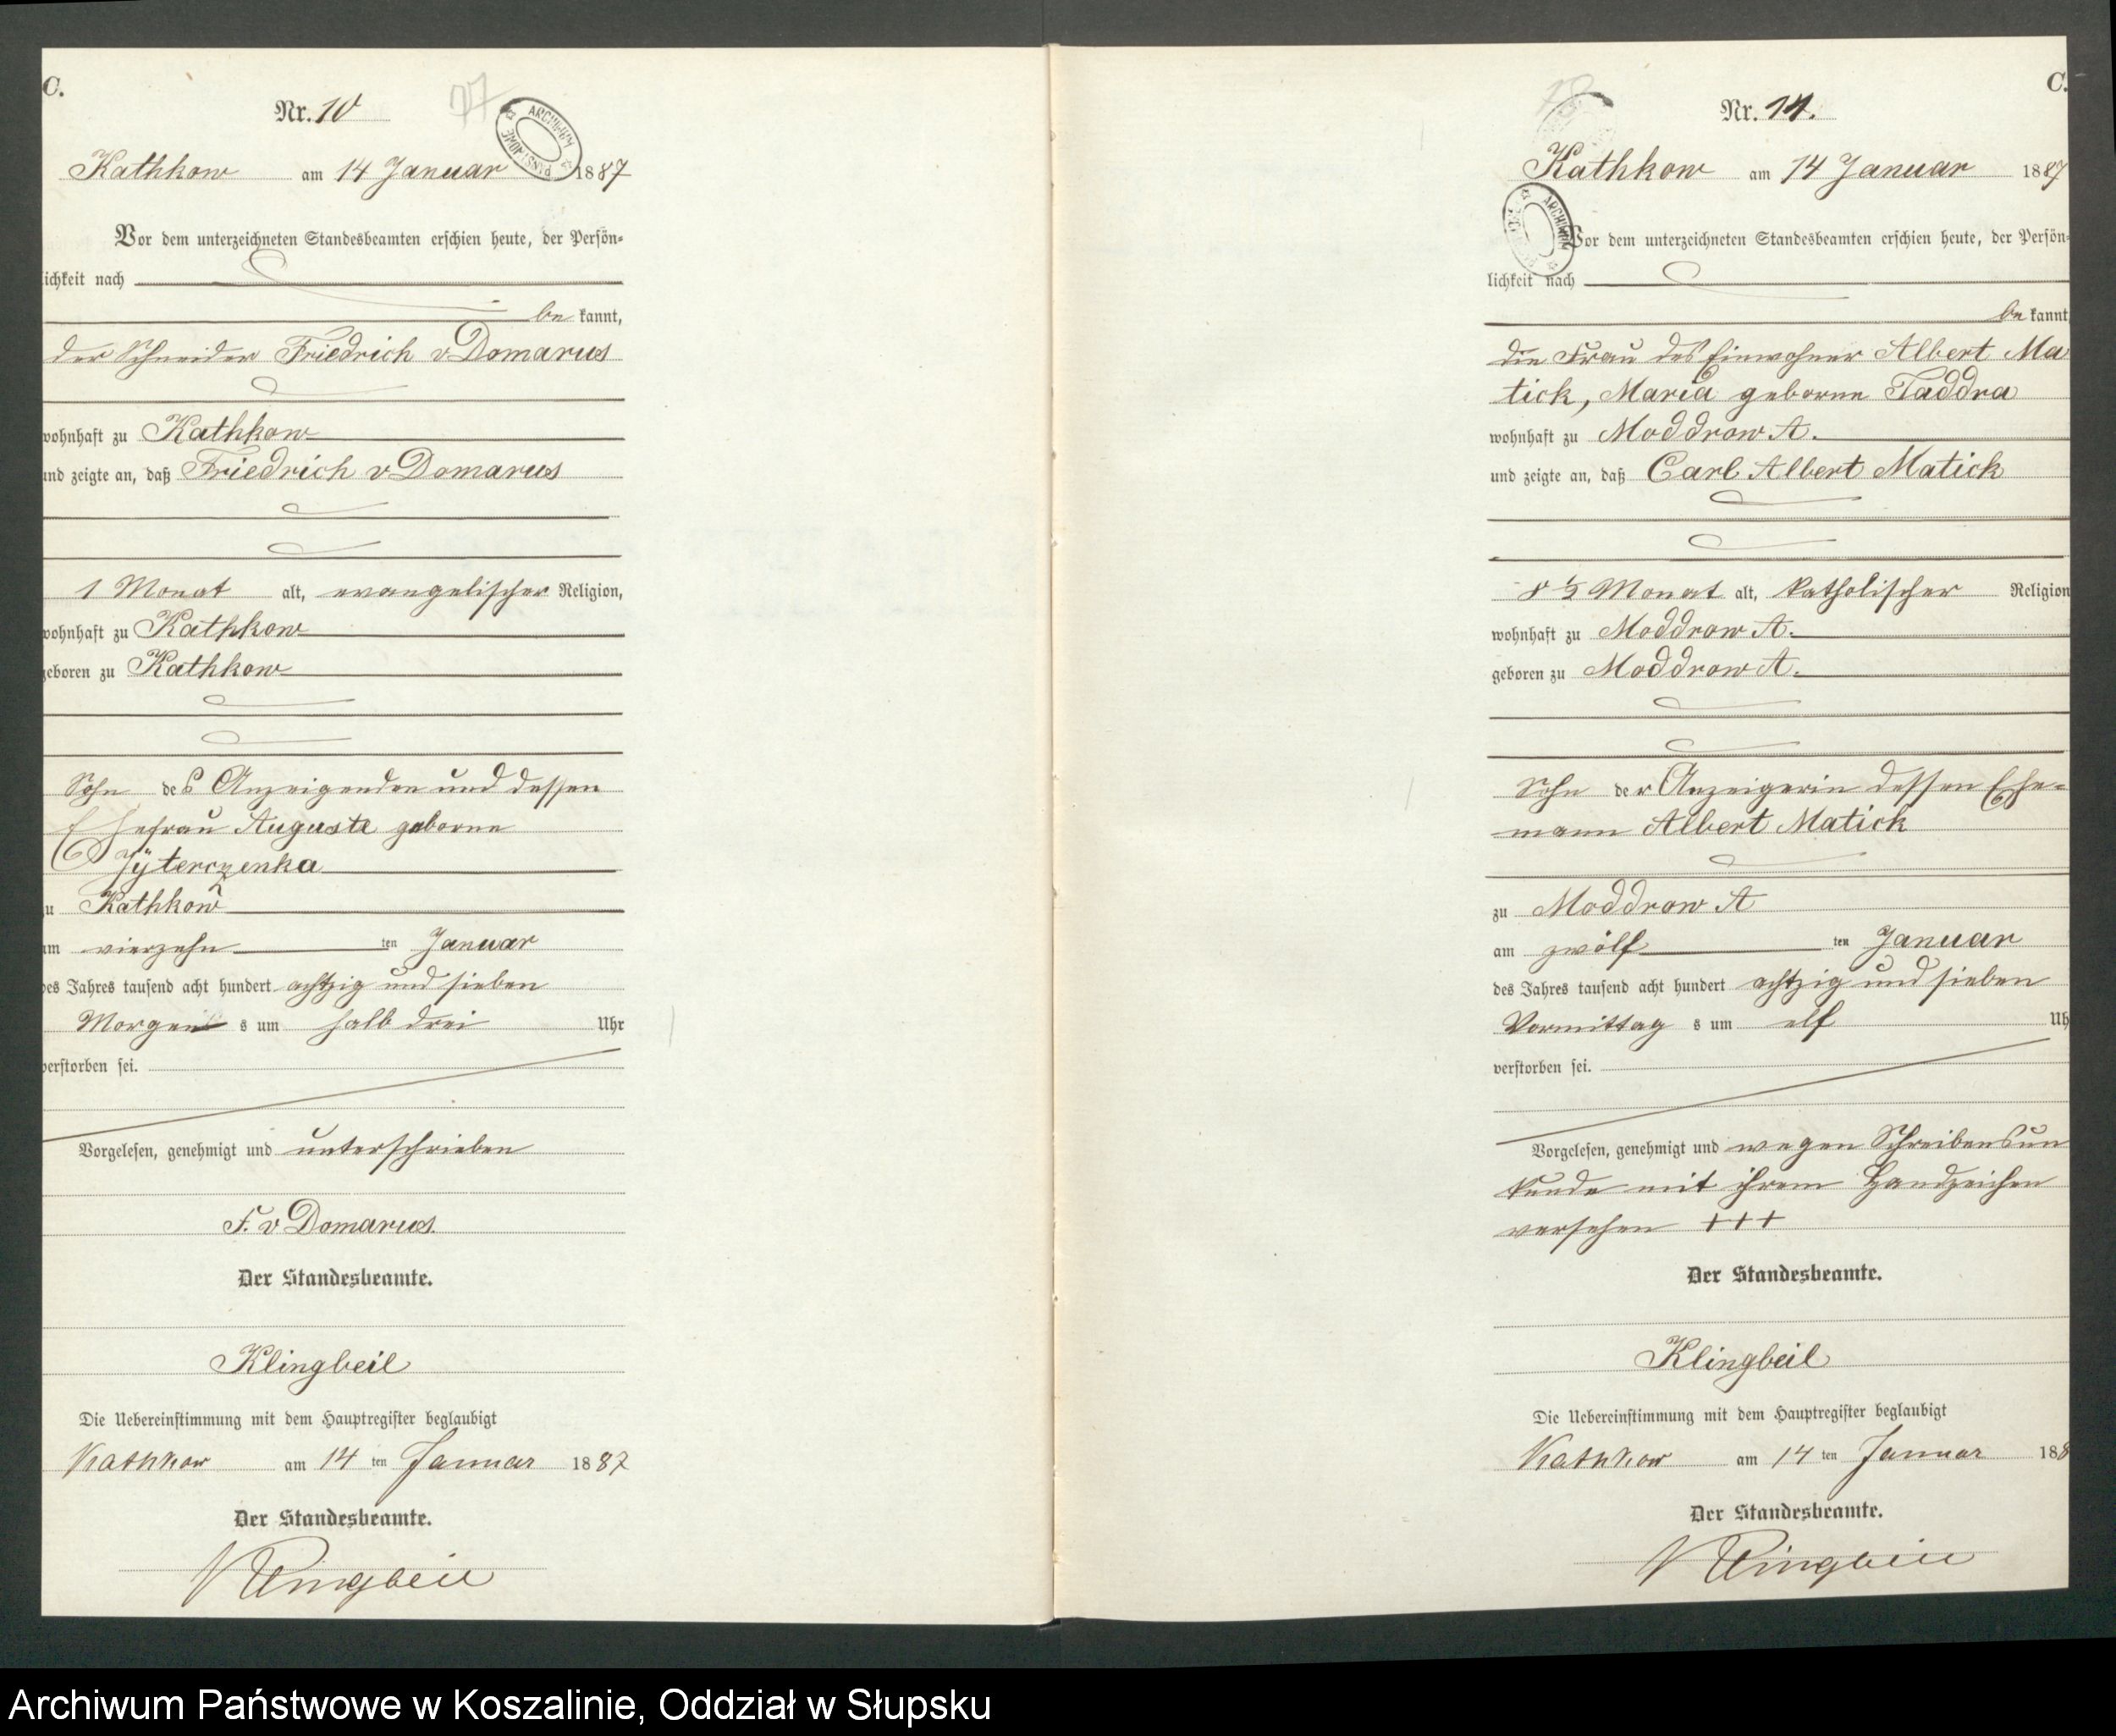 C.
Nr. 10
77
ARCHIWUM PAŃSTWOWE
Kathkow am 14 Januar 1887
Vor dem unterzeichneten Standesbeamten erschien heute, der Persön-
lichkeit nach
be kannt,
der Schneider Friedrich v Domarus
wohnhaft zu Kathkow
und zeigte an, daß Friedrich v Domarus
1 Monat alt, evangelischer Religion,
wohnhaft zu Kathkow
geboren zu Kathkow
Sohn des Anzeigenden und dessen
Ehefrau Auguste geborne
Jÿterczenka
zu Kathkow
am vierzehn ten Januar
des Jahres tausend acht hundert achtzig und sieben
Morgen s um halb drei Uhr
verstorben sei.
Vorgelesen, genehmigt und unterschrieben
F. v Domarus.
Der Standesbeamte.
Klingbeil
Die Uebereinstimmung mit dem Hauptregister beglaubigt
Kathkow am 14 ten Januar 1887
Der Standesbeamte.
Klingbeil
C.
Nr. 11.
78
Kathkow am 14 Januar 1887
Vor dem unterzeichneten Standesbeamten erschien heute, der Persön-
lichkeit nach
be kannt
die Frau des Einwohner Albert Ma
tick, Maria geborne Taddra
wohnhaft zu Moddrow A.
und zeigte an, daß Carl Albert Matick
Monat alt, katholischer Religion
wohnhaft zu Moddrow A.
geboren zu Moddrow A.
Sohn der Anzeigerin dessen Ehe-
mann Albert Matick
zu Moddrow A
am zwölf ten Januar
des Jahres tausend acht hundert achtzig und sieben
Vormittag s um elf Uh
verstorben sei.
Vorgelesen, genehmigt und wegen Schreibensun
kunde mit ihrem Handzeichen
versehen +++
Der Standesbeamte.
Klingbeil
Die Uebereinstimmung mit dem Hauptregister beglaubigt
Kathkow am 14 ten Januar 188
Der Standesbeamte.
Klingbeil
Archiwum Państwowe w Koszalinie, Oddział w Słupsku